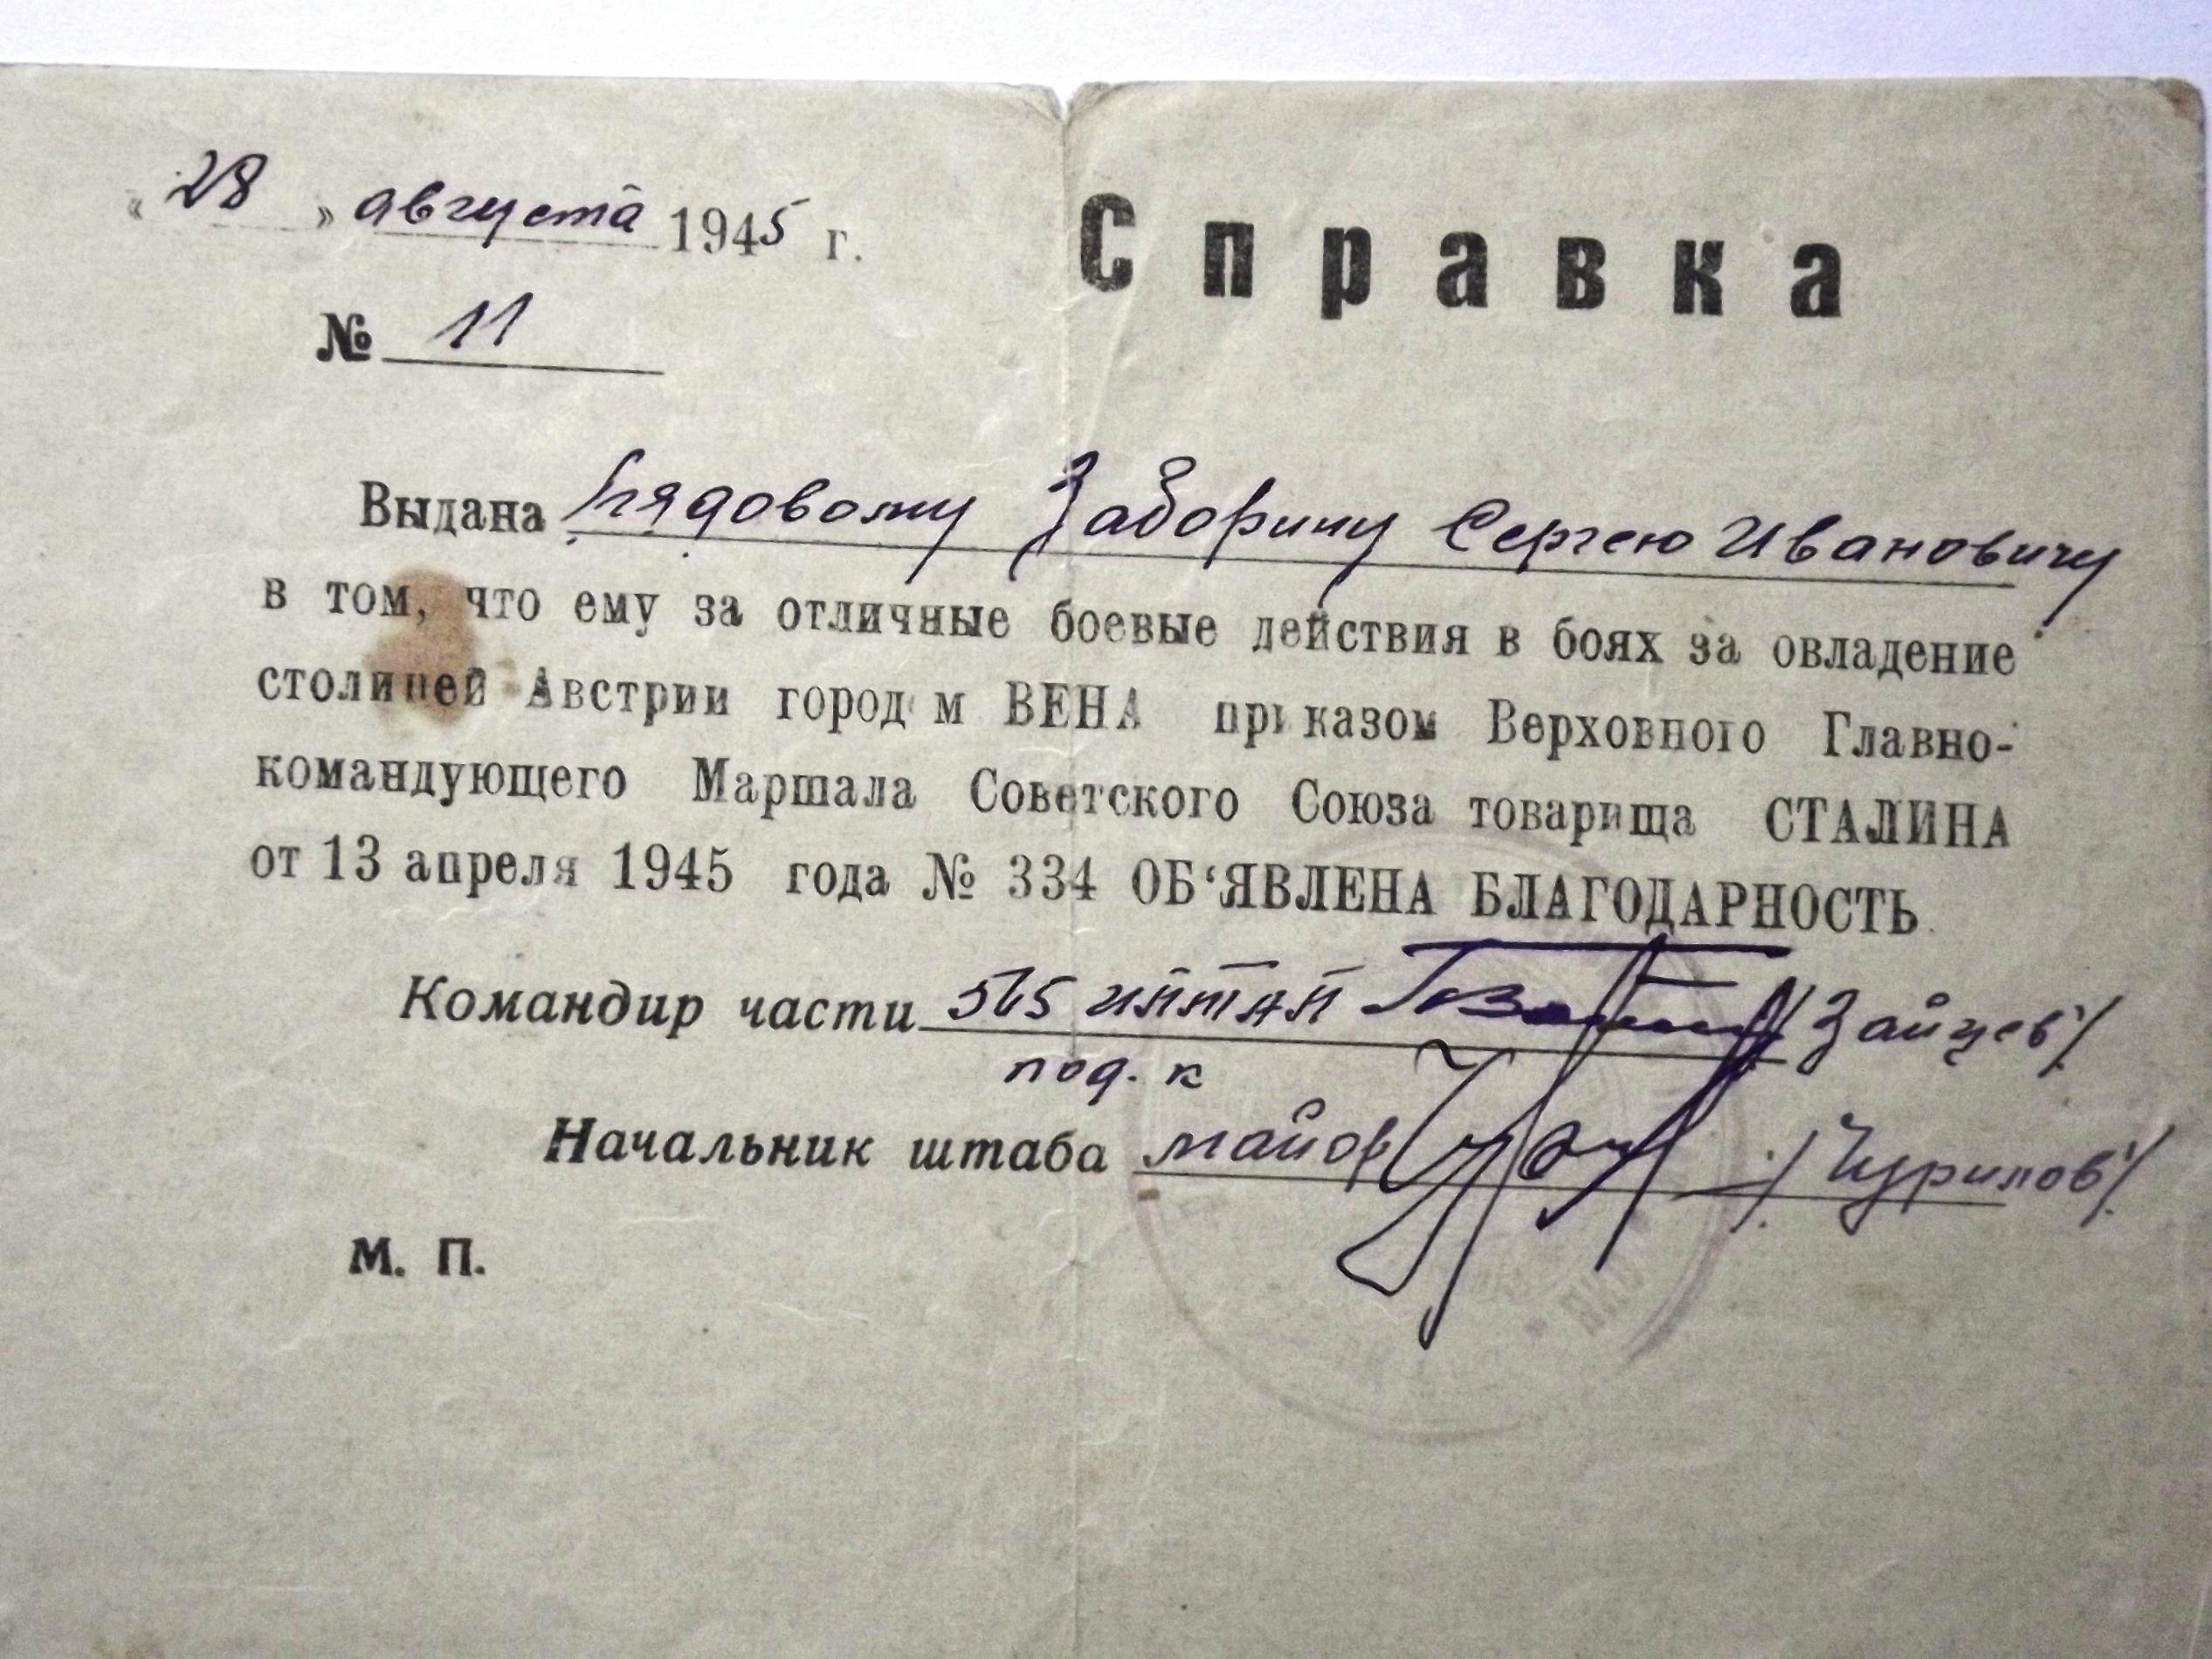 « 28 » августа 1945 г.
Справка
№ 11
Выдана Рядовому Заборину Сергею Ивановичу
в том, что ему за отличные боевые действия в боях за овладение
столицей Австрии городом ВЕНА приказом Верховного Главно-
командующего Маршала Советского Союза товарища СТАЛИНА
от 13 апреля 1945 года № 334 ОБ‘ЯВЛЕНА БЛАГОДАРНОСТЬ.
Командир части 565 иптап /Зайцев/
под. к
Начальник штаба майор /Чурилов/
М. П.